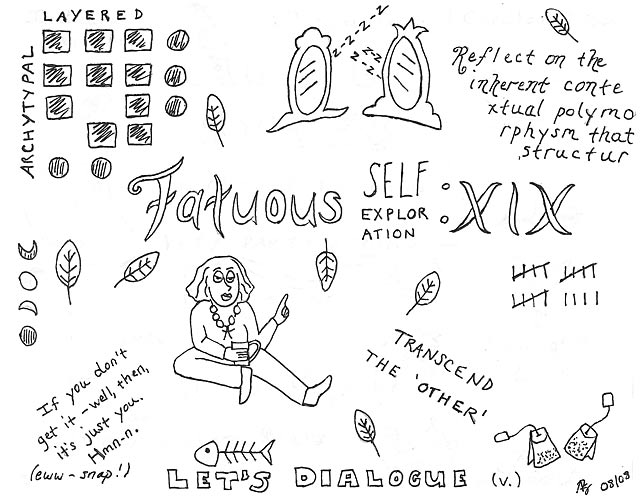 LAYERED
ARCHYTYPAL
Z-Z-Z-Z
Z-Z-
Z-Z-
Reflect on the
inherent conte
xtual polymo
rphysm that
structur
Fatuous SELF EXPLOR ATION : XIX
TRANSCEND
THE 'OTHER'
If you don't
get it - well, then,
it's just you.
Hmn-n.
(eww - snap!)
LET'S DIALOGUE (v.)
08/08